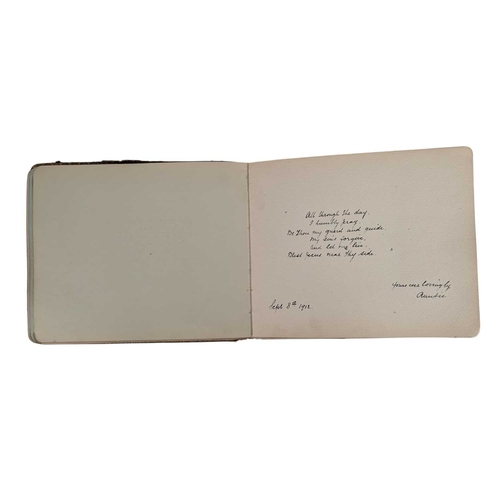 All through the day.
I humbly pray
Be Thou my guard and guide.
My sins forgive,
and let me live.
Blest Jesus near Thy side.
Yours ever lovingly
Auntie
Sept 8th 1912